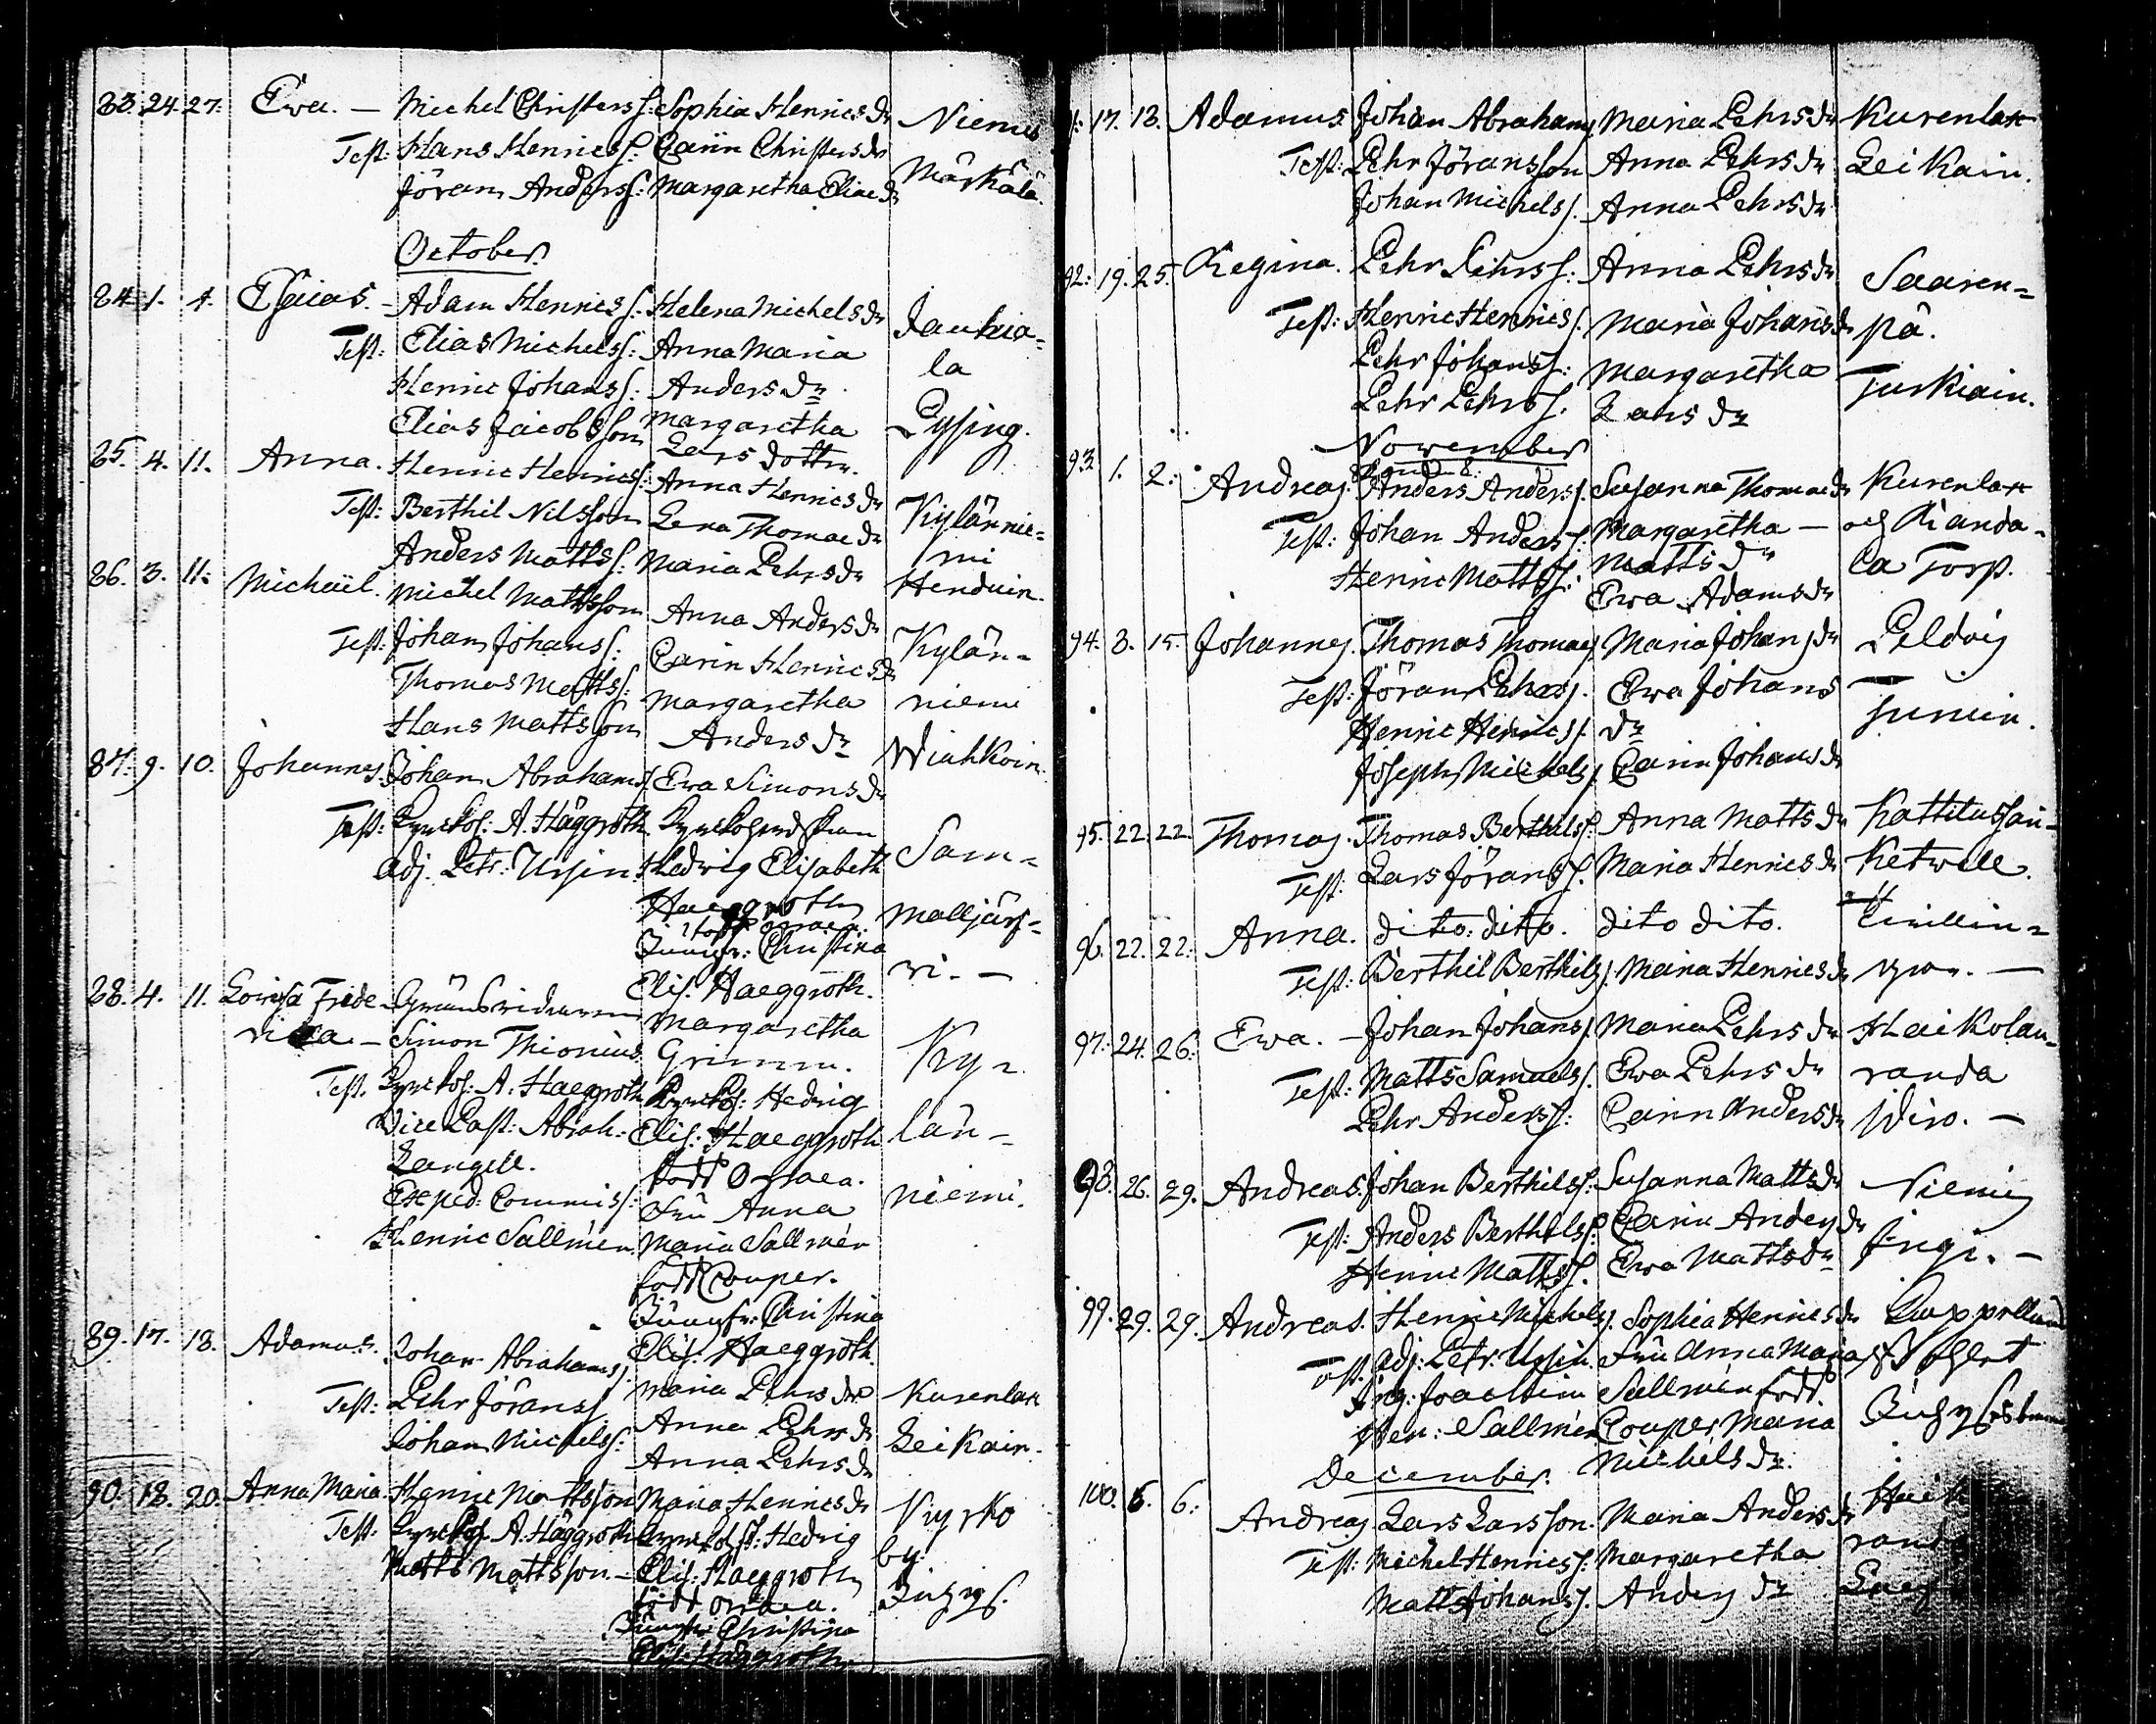 83. 24. 27. Ewa. — Michel Christerss: Sophia Henricsdr Niemis
Test: Hans Henricss: Carin Christersdr Märkälä.
Jöran Anderss: Margaretha Eliaedr
October.
84. 1. 4. Esaias. – Adam Henricss: Helena Michelsdr Jaukia-
Test: Elias Michelss: Anna Maria la
Henric Johanss: Andersdr Pysing.
Elias Jacobsson Margaretha
Larsdotter.
85. 4. 11. Anna. Henric Henricss: Anna Henricsdr Kylännie-
Test: Berthil Nilsson Lena Thomaedr mi
Anders Mattss: Maria Pehrsdr Henduin.
86. 3. 11: Michaël. Michel Mattsson Anna Andersdr Kylän-
Test: Johan Johanss: Carin Henricsdr niemi
Thomas Mattss: Margaretha Wiahkoin.
Hans Mattsson Andersdr
87. 9. 10. Johannes. Johan Abrahams. Ewa Simonsdr Sam-
Test: A. Häggroth
Adj. Petr: Ursin Hedwig Elisabeth malljärf-
Haeggroth wi. —
Jungfr: Christina
Elis. Haeggroth.
88. 4. 11. Lowisa Frede- Gränsridaren Margaretha Ky-
rica — Simon Thionius. Grimm. län-
Test. A. Haeggroth Hedvig niemi.
Vice Past: Abrah: Elis: Haeggroth
Zangell. född Orraea.
Exsped: Commiss: Fru Anna
Henric Sallmén Maria Sallmén
född Couper.
Jungfr: Christina
Elis: Haeggroth.
89. 17. 18. Adamus. Johan Abrahams. Maria Pehrsdr Kurenlax
Test: Pehr Jöranss. Anna Pehrsdr Leikain.
Johan Michelss: Anna Pehrsdr
90. 18. 20. Anna Maria Henric Mattsson Maria Henricsdr Kyrko
Test. A. Häggroth Hedvig by.
Matts Mattsson. – Elis: Haeggroth
född Orraea.
Jungfr: Christina
Elis: Häggroth.
17. 18. Adamus Johan Abrahams Maria Pehrsdr Kurenlax
Test: Pehr Jöransson Anna Pehrsdr Leikain.
Johan Michelss. Anna Pehrsdr
92: 19. 25. Regina. Pehr Pehrss: Anna Pehrsdr Saaren-
Test: Henric Henricss. Maria Johansdr pä.
Pehr Johanss: Margaretha Turkiain.
Pehr Pehrss. Larsdr
November
93. 1. 2: Andreas. Anders Anderss. Susanna Thomaedr Kurenlax
Test: Johan Anderss: Margaretha — och Rianda-
Henric Mattss: Mattsdr la Torp.
Ewa Adamsdr
94. 3. 15. Johannes. Thomas Thomas. Maria Johansdr Peldois
Test: Jöran Pehrss. Ewa Johans Junein.
Henric Henricss. dr
Joseph Michels. Carin Johansdr
95. 22. 22. Thomas. Thomas Berthilss: Anna Mattsdr Kattilussaa-
Test: Lars Jöranss. Maria Henricsdr
96. 22. 22: Anna. dito: dito. dito dito.
Test: Berthil Berthils. Maria Henricsdr
97. 24. 26: Ewa. – Johan Johanss. Maria Pehrsdr Haikolan-
Test: Matts Samuelss. Ewa Pehrsdr randa
Pehr Anderss: Carin Andersdr
98. 26. 29. Andreas. Johan Berthilss: Susanna Mattsdr Niemis
Test: Anders Berthilss: Carin Andersdr Ingi. —
Henric Mattss. Ewa Mattsdr
99. 29. 29. Andreas. Henric Michels. Sophia Henricsdr
Test. Adj: Petr. Ursin. Fru Anna Maria
Ing: Joachim Sallmén född
Hen: Sallmén Couper, Maria
Michelsdr.
December.
100. 6. 6: Andreas. Lars Larsson. Maria Andersdr
Test: Michel Henricss: Margaretha
Matts Johans. Andersdr